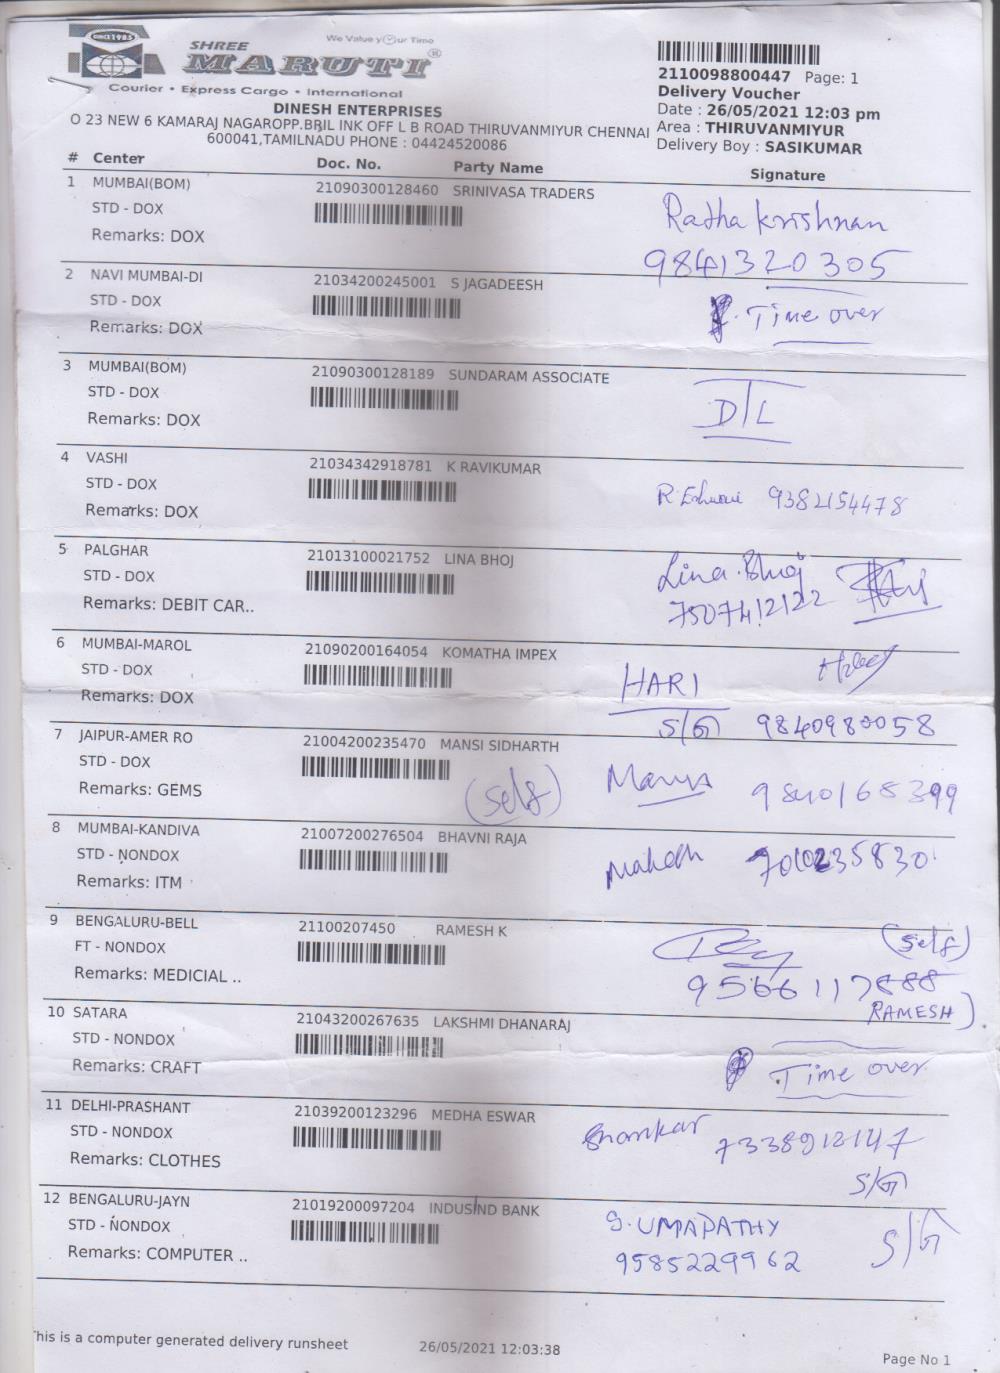 SINCE 1985
We Value yOur Time
SHREE
MARUTI®
Courier • Express Cargo • International
2110098800447 Page: 1
Delivery Voucher
Date : 26/05/2021 12:03 pm
Area : THIRUVANMIYUR
Delivery Boy : SASIKUMAR
DINESH ENTERPRISES
O 23 NEW 6 KAMARAJ NAGAROPP.BRIL INK OFF L B ROAD THIRUVANMIYUR CHENNAI
600041,TAMILNADU PHONE : 04424520086
# Center Doc. No. Party Name Signature
1 MUMBAI(BOM) 21090300128460 SRINIVASA TRADERS
STD - DOX Radha krishnan
Remarks: DOX 9841320305
2 NAVI MUMBAI-DI 21034200245001 S JAGADEESH
STD - DOX Time over
Remarks: DOX
3 MUMBAI(BOM) 21090300128189 SUNDARAM ASSOCIATE
STD - DOX D/L
Remarks: DOX
4 VASHI 21034342918781 K RAVIKUMAR
STD - DOX 9382154478
Remarks: DOX
5 PALGHAR 21013100021752 LINA BHOJ
STD - DOX Lina.Bhoj
Remarks: DEBIT CAR.. 7507412122
6 MUMBAI-MAROL 21090200164054 KOMATHA IMPEX
STD - DOX HARI
Remarks: DOX 9840980058
7 JAIPUR-AMER RO 21004200235470 MANSI SIDHARTH
STD - DOX (self)
Remarks: GEMS 9840168399
8 MUMBAI-KANDIVA 21007200276504 BHAVNI RAJA
STD - NONDOX
Remarks: ITM
9 BENGALURU-BELL 21100207450 RAMESH K
FT - NONDOX (self)
Remarks: MEDICIAL .. 9566117888
RAMESH)
10 SATARA 21043200267635 LAKSHMI DHANARAJ
STD - NONDOX
Remarks: CRAFT Time over
11 DELHI-PRASHANT 21039200123296 MEDHA ESWAR
STD - NONDOX Shankar 7338912147
Remarks: CLOTHES
12 BENGALURU-JAYN 21019200097204 INDUSIND BANK
STD - NONDOX S.UMAPATHY
Remarks: COMPUTER .. 9585229962
This is a computer generated delivery runsheet 26/05/2021 12:03:38
Page No 1